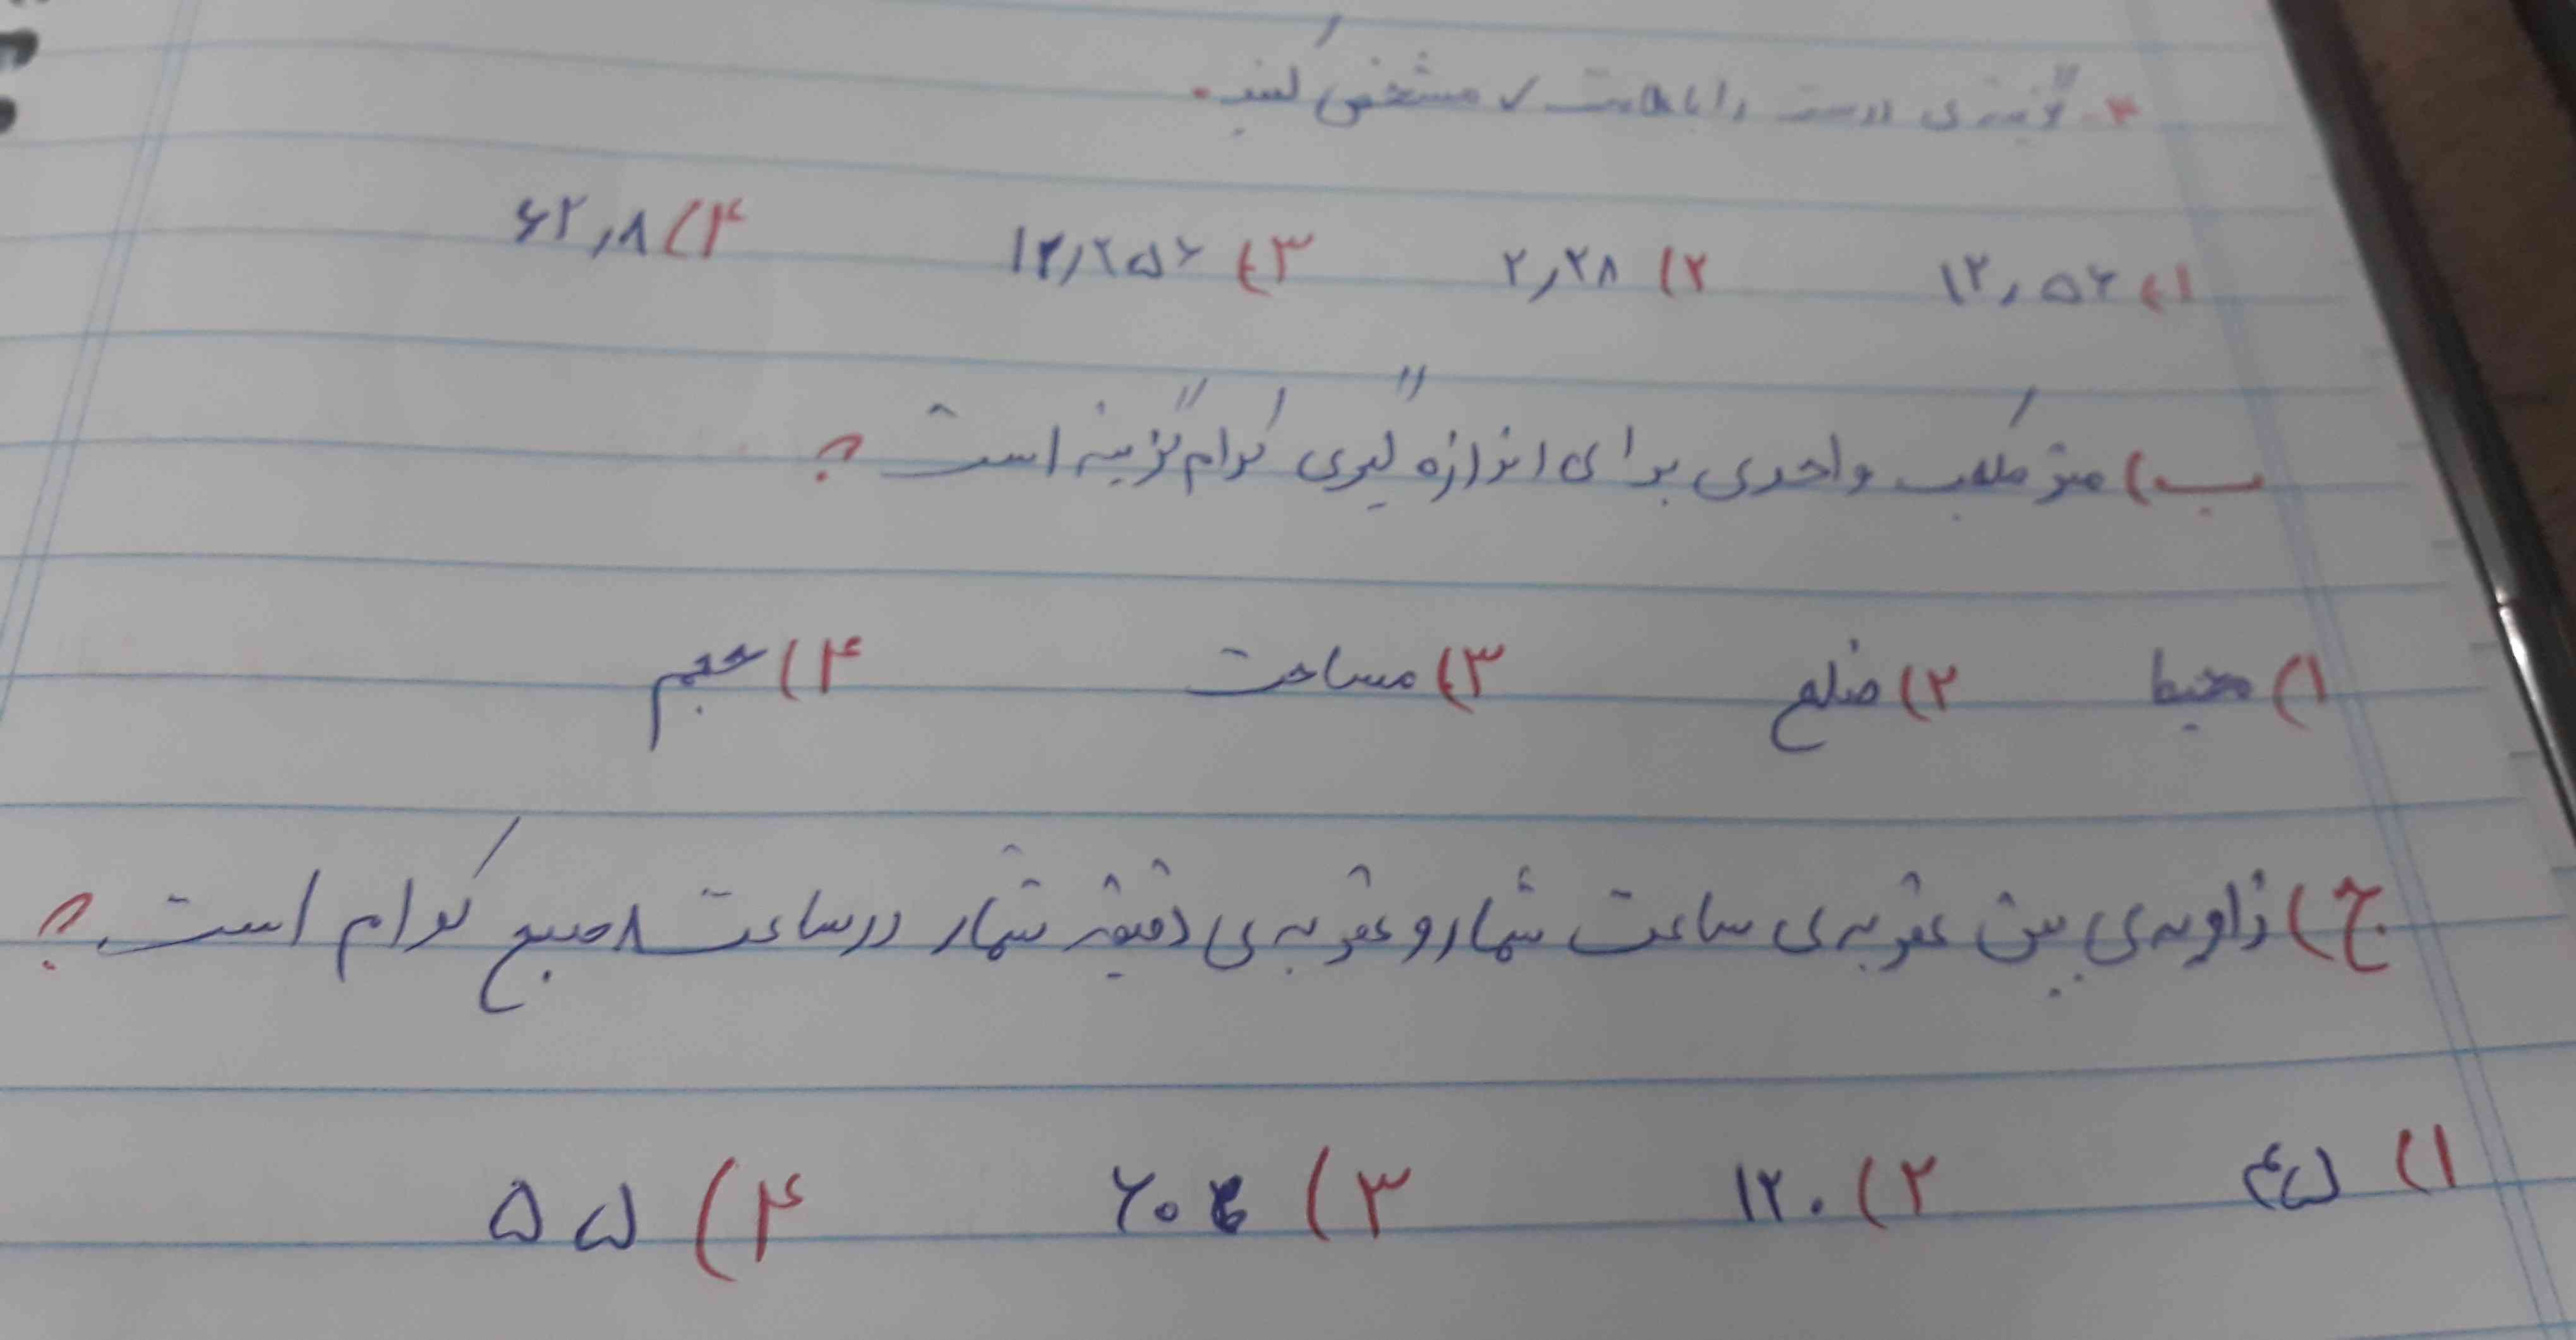 ۳- گزینه ی درست را با علامت ✓ مشخص کنید.
۱) ۱۲٫۵۶ ۲) ۲٫۲۸ ۳) ۱۲٫۲۵۶ ۴) ۶۲٫۸
ب) متر مکعب واحدی برای اندازه گیری کدام گزینه است ؟
۱) محیط ۲) ضلع ۳) مساحت ۴) حجم
ج) زاویه ی بین عقربه ی ساعت شمار و عقربه ی دقیقه شمار در ساعت ۸ صبح کدام است ؟
۱) ۴۵ ۲) ۱۲۰ ۳) ۶۰ ۴) ۵۵